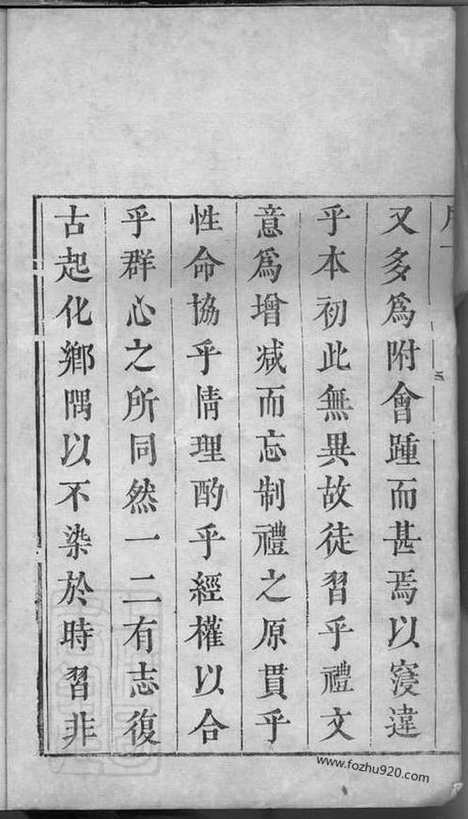 又多爲附會踵而甚焉以寖違
乎本初此無異故徒習乎禮文
意爲增減而忘制禮之原貫乎
性命協乎情理酌乎經權以合
乎群心之所同然一二有志復
古起化鄉隅以不染於時習非
www.fozhu920.com